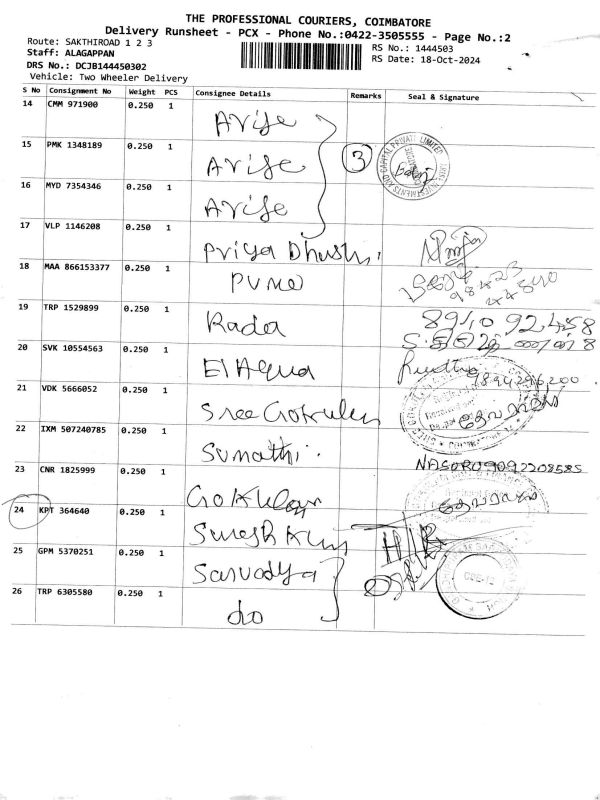 THE PROFESSIONAL COURIERS, COIMBATORE
Delivery Runsheet - PCX - Phone No.:0422-3505555 - Page No.:2
Route: SAKTHIROAD 1 2 3
RS No.: 1444503
Staff: ALAGAPPAN
RS Date: 18-Oct-2024
DRS No.: DCJB144450302
Vehicle: Two Wheeler Delivery
S No Consignment No Weight PCS Consignee Details Remarks Seal & Signature
14 CMM 971900 0.250 1 Arise
15 PMK 1348189 0.250 1 Arise 3
16 MYD 7354346 0.250 1 Arise
17 VLP 1146208 0.250 1 Priya Dhush
18 MAA 866153377 0.250 1 Pune
19 TRP 1529899 0.250 1 Rada
20 SVK 10554563 0.250 1 El Aqua
21 VDK 5666052 0.250 1 Sree Gokulam
22 IXM 507240785 0.250 1 Sumathi
23 CNR 1825999 0.250 1 Gokulam NASAR 09092208585
24 KPT 364640 0.250 1 Suresh Kum
25 GPM 5370251 0.250 1 Sarvodya
26 TRP 6305580 0.250 1 do